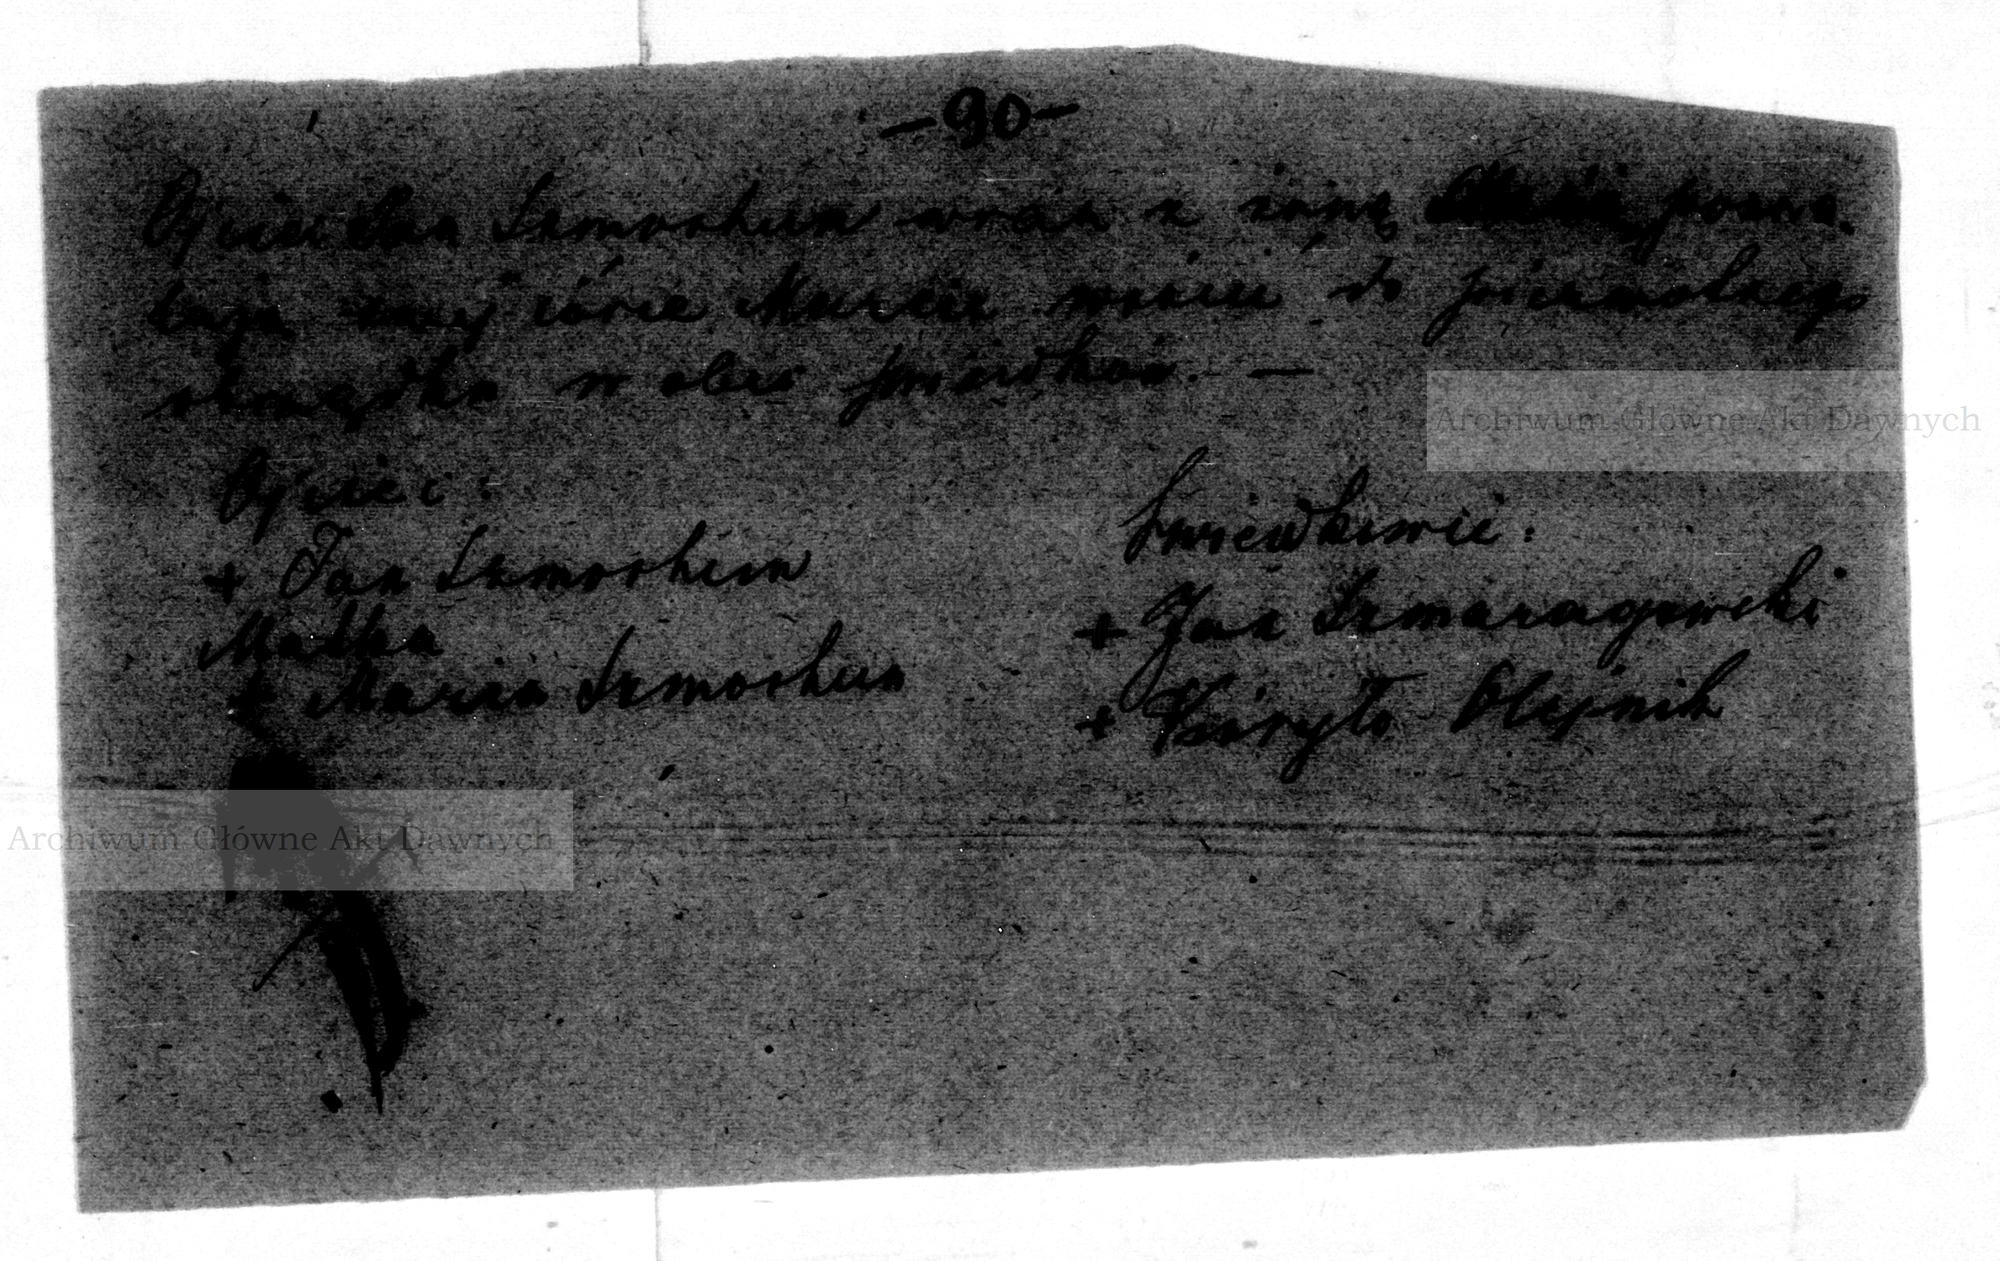 -90-
Ojciec Jan Szmorhun wraz z żoną pozwa-
lają swej córce Marcie wrócić do pierwotnego
obrządku w obec świadków. —
Ojciec:
+ Jan Szmorhun
Matka
+ Maria Szmorhun
Świadkowie:
+ Jan Szmaragowski
+ Olejnik
Archiwum Główne Akt Dawnych
Archiwum Główne Akt Dawnych